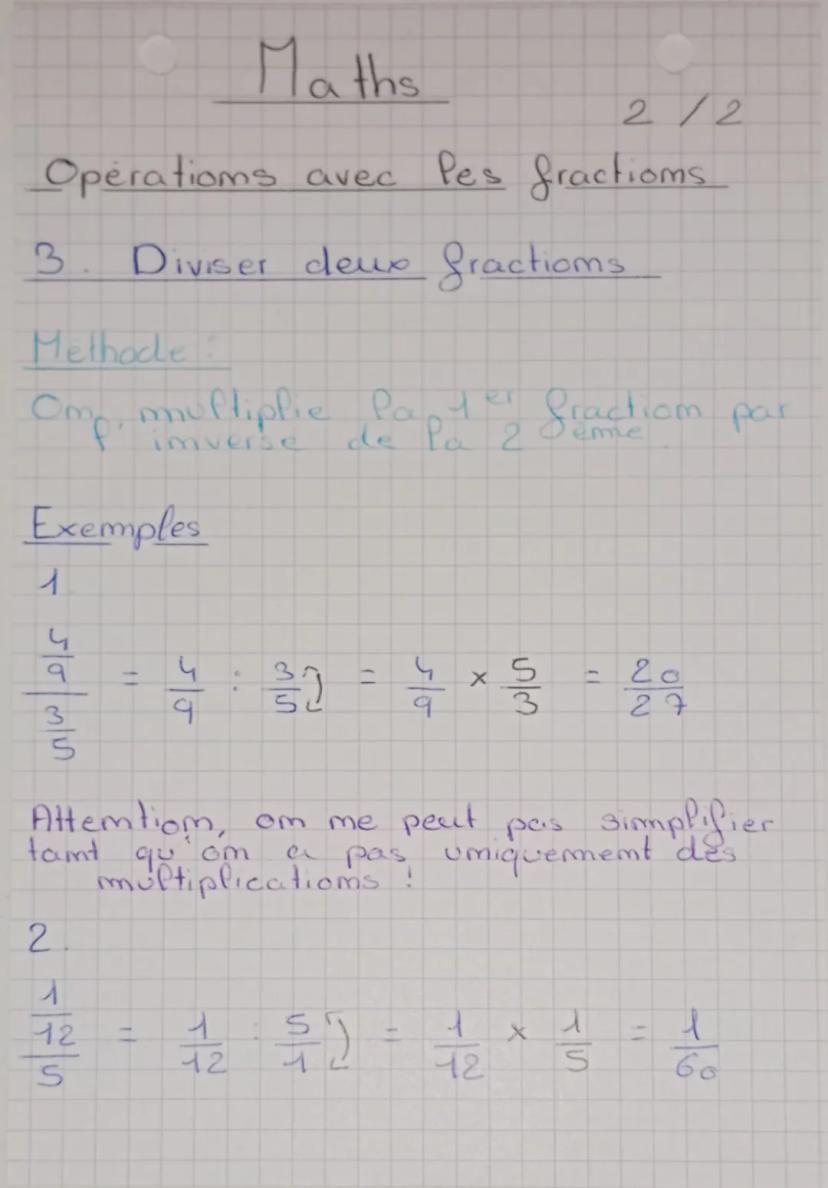 Maths
2 / 2
Opérations avec les fractions
3. Diviser deux fractions
Méthode :
On multiplie la 1er fraction par
l'inverse de la 2ème
Exemples
1
4/9 / 3/5 = 4/9 : 3/5 = 4/9 × 5/3 = 20/27
Attention, on ne peut pas simplifier
tant qu'on a pas uniquement des
multiplications !
2.
1/12 / 5 = 1/12 : 5/1 = 1/12 × 1/5 = 1/60